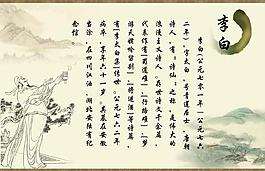 李白
李白(公元七零一年—公元七六
二年),字太白,号青莲居士,唐朝
诗人,有“诗仙”之称,是伟大的
浪漫主义诗人。存世诗文千余篇,
代表作有《蜀道难》、《行路难》、《梦
游天姥吟留别》、《将进酒》等诗篇,
有《李太白集》传世。公元七六二年
病卒,享年六十一岁。其墓在安徽
当涂,在四川江油、湖北安陆有纪
念馆